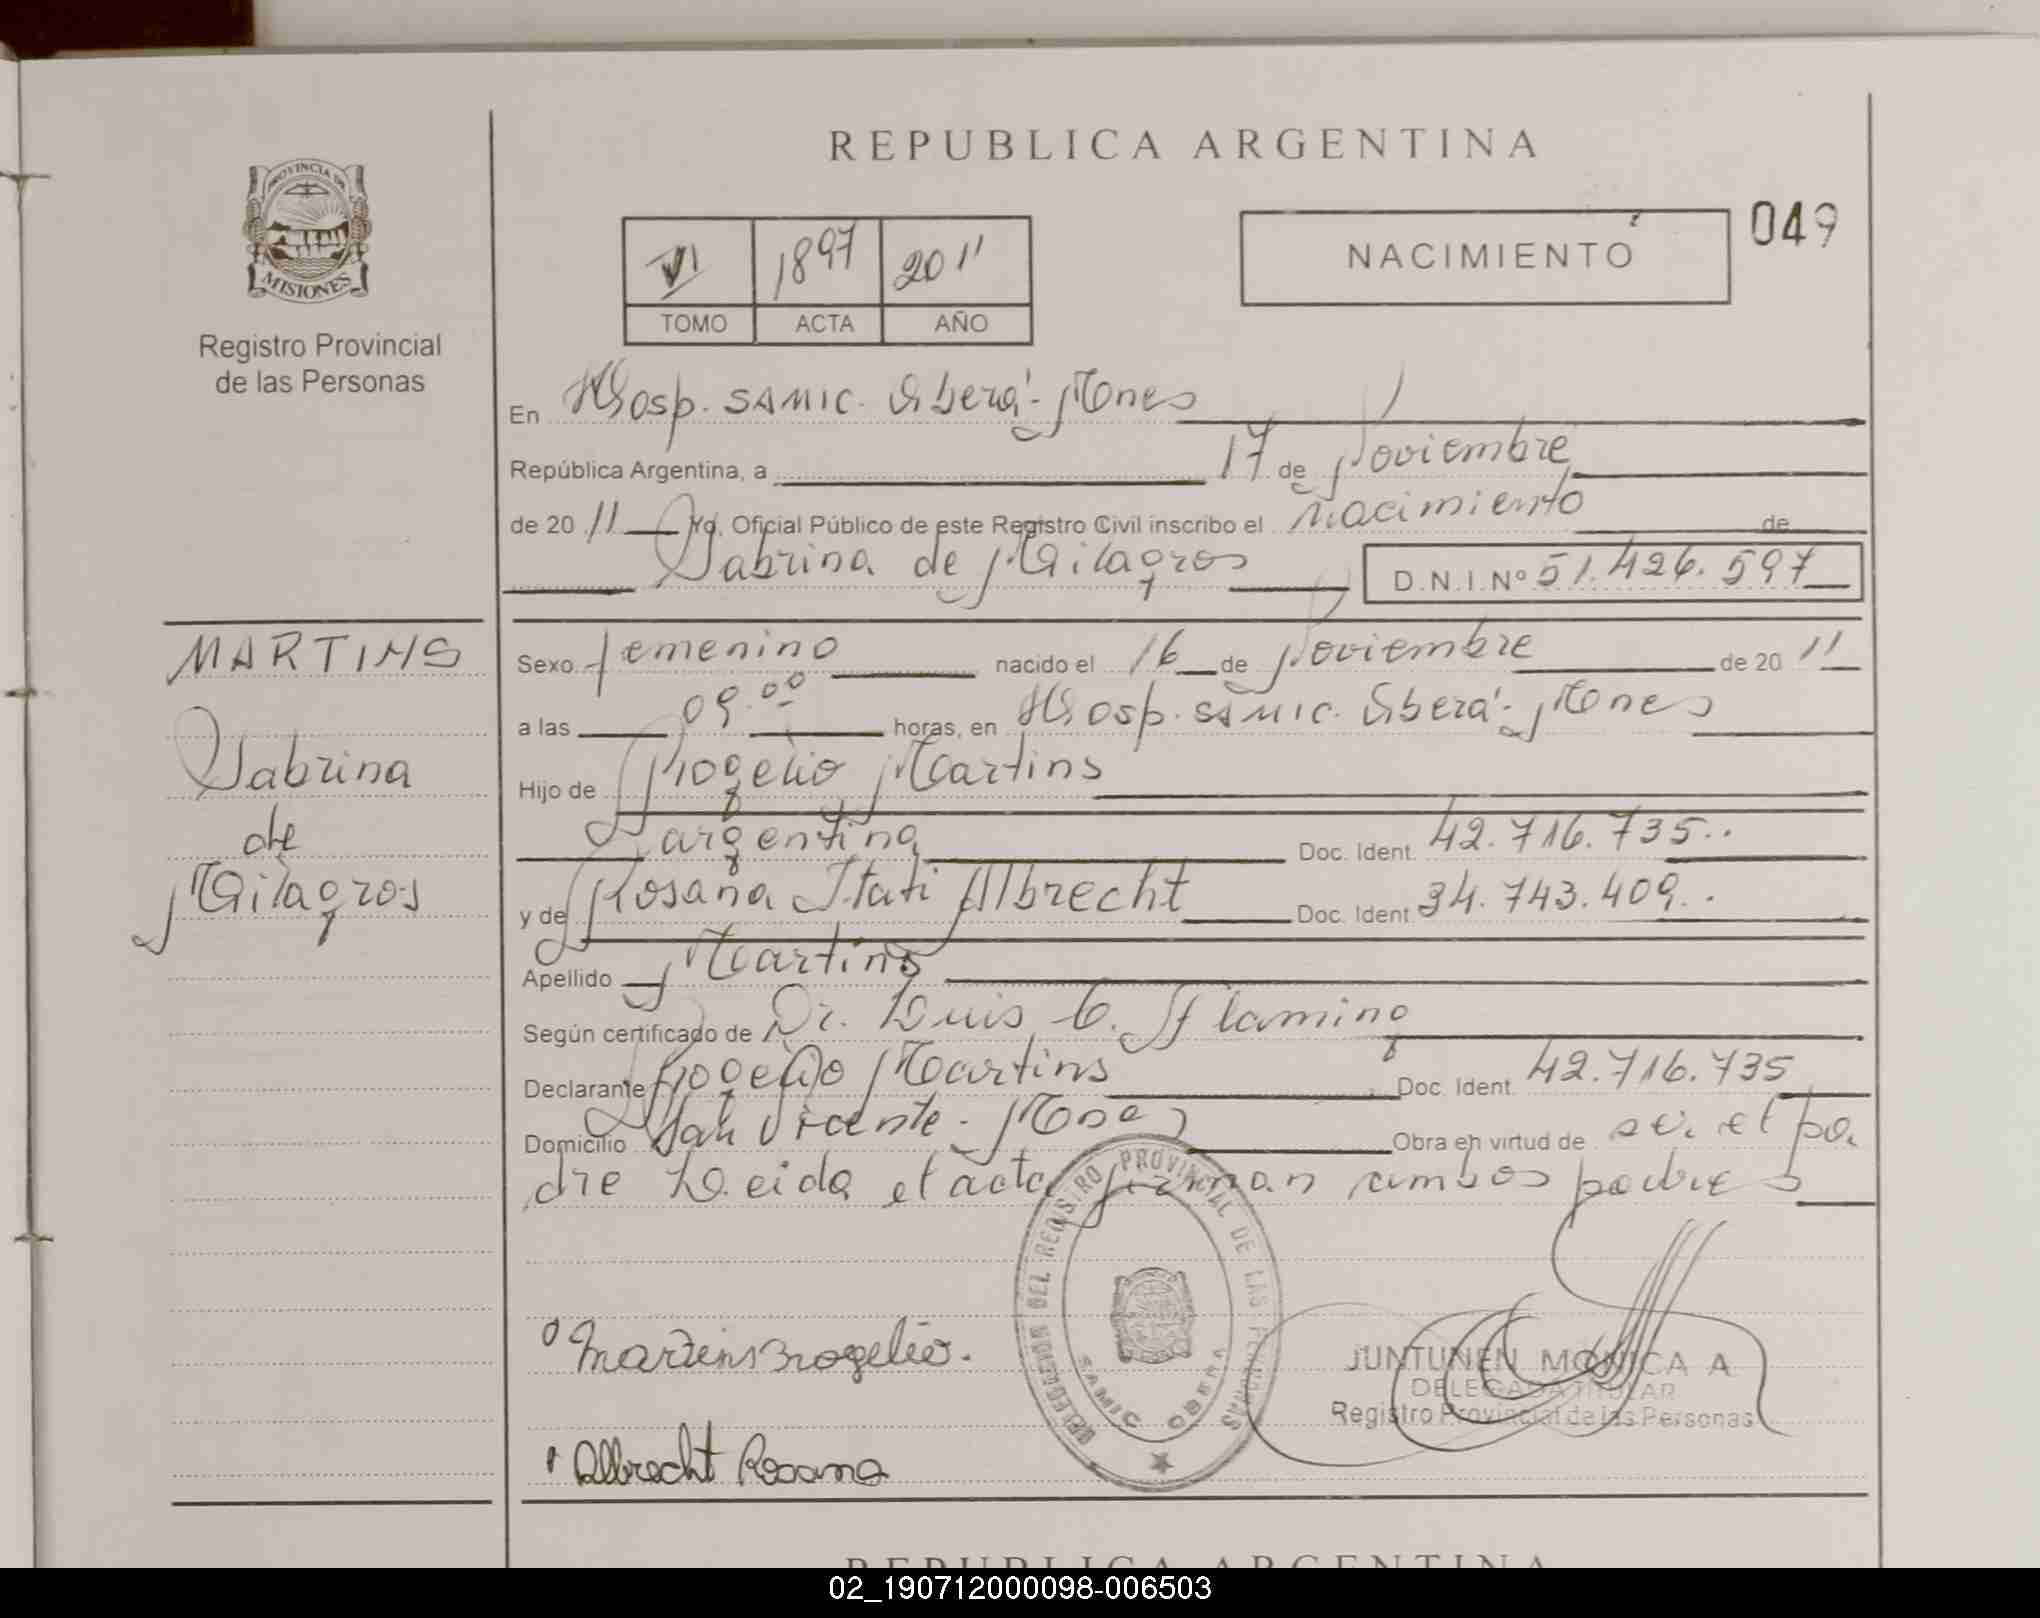 REPUBLICA ARGENTINA
PROVINCIA DE
MISIONES
Registro Provincial
de las Personas
VI 1897 2011
TOMO ACTA AÑO
NACIMIENTO
049
En Hosp. SAMIC. Oberá - Mnes
República Argentina, a 17 de Noviembre
de 20 11 Yo, Oficial Público de este Registro Civil inscribo el Nacimiento de
Sabrina de Milagros D.N.I.Nº 51.426.597
MARTINS
Sabrina
de
Milagros
Sexo femenino nacido el 16 de Noviembre de 20 11
a las 09.00 horas, en Hosp. SAMIC. Oberá - Mnes
Hijo de Rogelio Martins
argentina Doc. Ident. 42.716.735..
y de Rosana Itati Albrecht Doc. Ident. 34.743.409..
Apellido Martins
Según certificado de Dr. Luis C. Flaming
Declarante Rogelio Martins Doc. Ident. 42.716.735
Domicilio San Vicente - Mnes Obra en virtud de ser el pa
dre Leida el acta firman ambos padres
DELEGACION DEL REGISTRO PROVINCIAL DE LAS PERSONAS
SAMIC OBERA
Martins Rogelio.
JUNTUNEN MONICA A
DELEGADA TITULAR
Registro Provincial de las Personas
Albrecht Rosana
REPUBLICA ARGENTINA
02_190712000098-006503